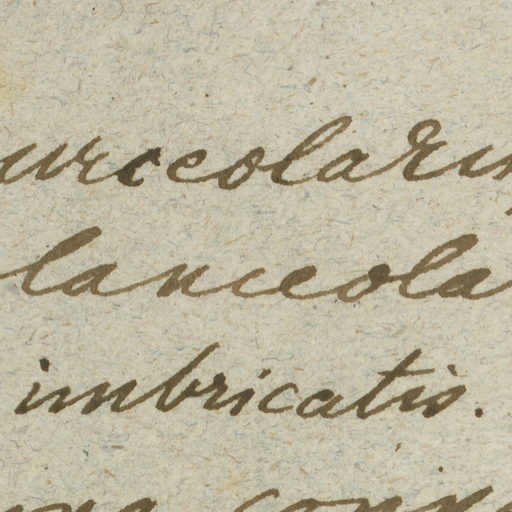 urceolari
lanceola
imbricatis.